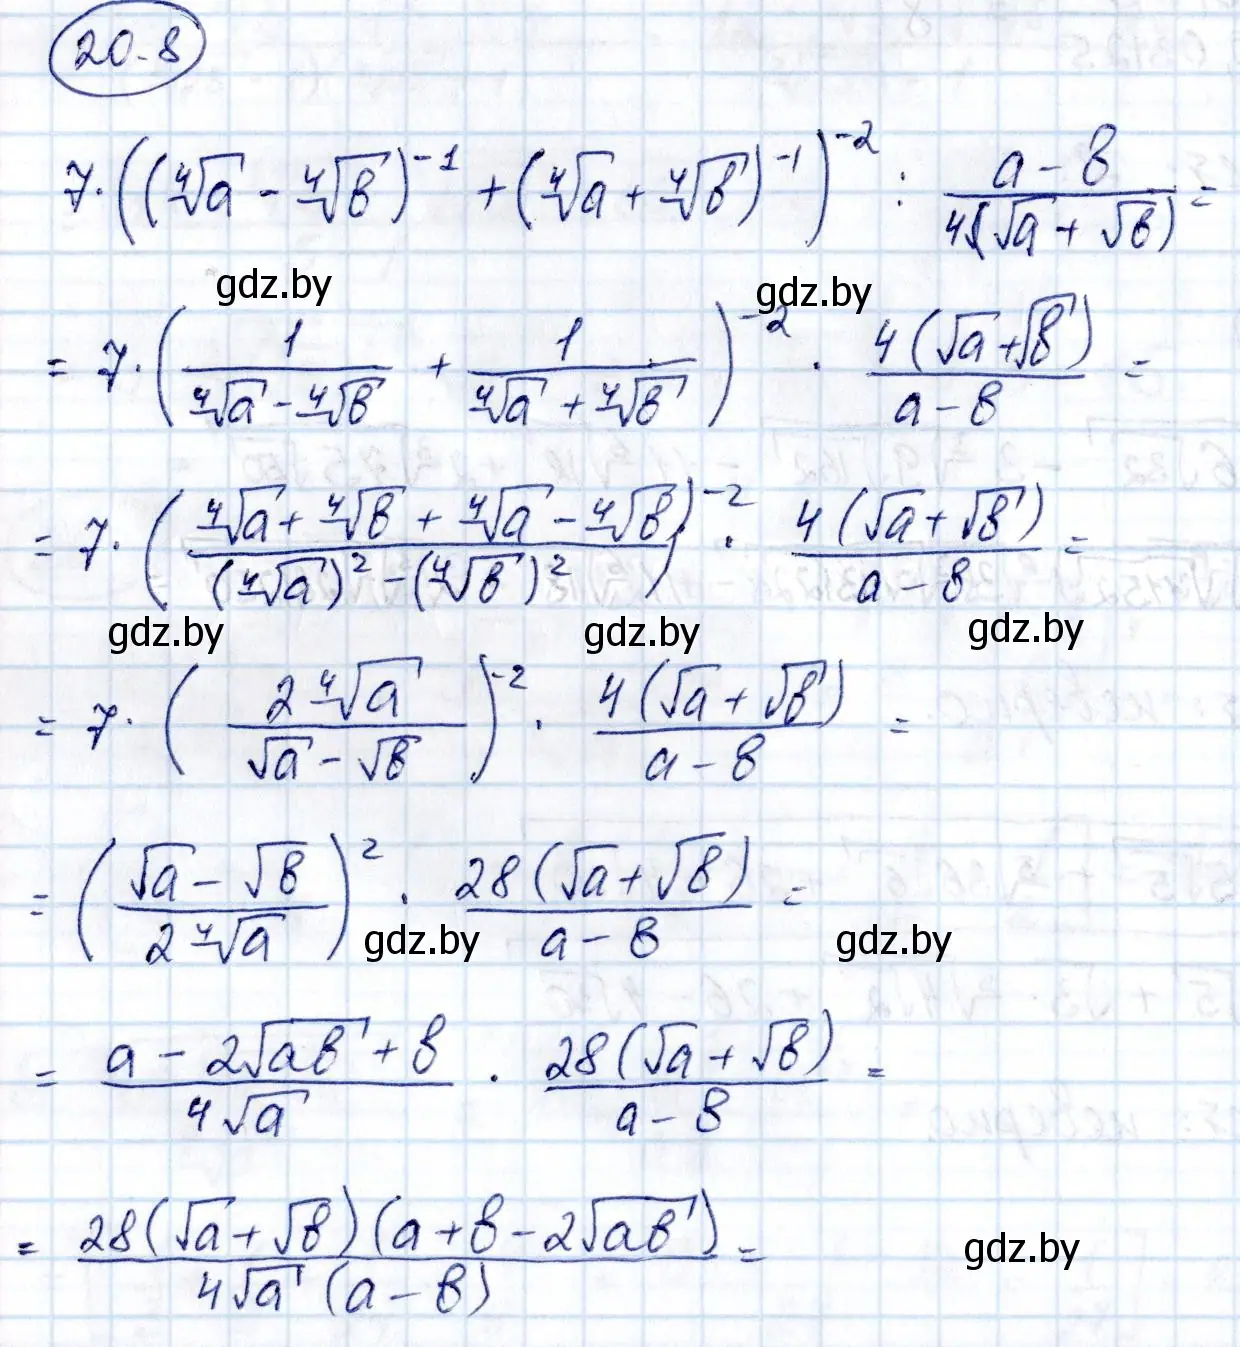 20.8
7·((∜a - ∜b)⁻¹ + (∜a + ∜b)⁻¹)⁻² : (a-b)/(4(√a + √b)) =
gdz.by gdz.by
= 7·(1/(∜a - ∜b) + 1/(∜a + ∜b))⁻² · (4(√a+√b))/(a-b) =
= 7·((∜a + ∜b + ∜a - ∜b)/((∜a)² - (∜b)²))⁻² · (4(√a+√b))/(a-b) =
gdz.by gdz.by gdz.by
= 7·((2∜a)/(√a - √b))⁻² · (4(√a+√b))/(a-b) =
= ((√a - √b)/(2∜a))² · (28(√a+√b))/(a-b) =
gdz.by gdz.by
= (a - 2√ab + b)/(4√a) · (28(√a+√b))/(a-b) =
= (28(√a+√b)(a+b-2√ab))/(4√a(a-b)) =
gdz.by